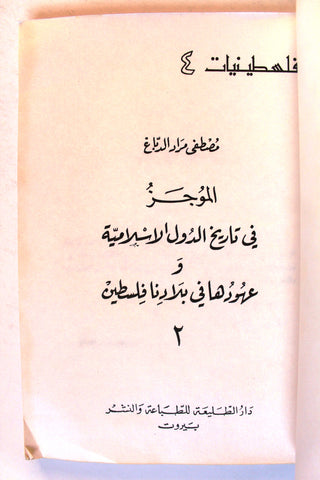 فلسطينيات ٤
مصطفى مراد الدباغ
الموجزُ
في تاريخ الدول الإسلامية
و
عهودها في بلادنا فلسطين
٢
دار الطليعة للطباعة والنشر
بيروت